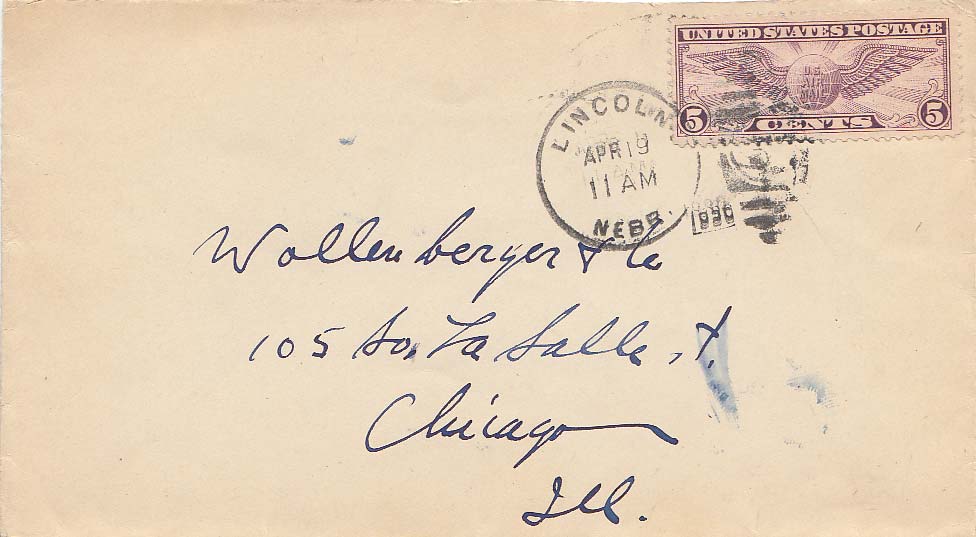 UNITED STATES POSTAGE
U.S.
AIR
MAIL
5 CENTS 5
LINCOLN
APR 19
11 AM
NEBR.
Wollenberger & Co
105 So. La Salle St.
Chicago
Ill.